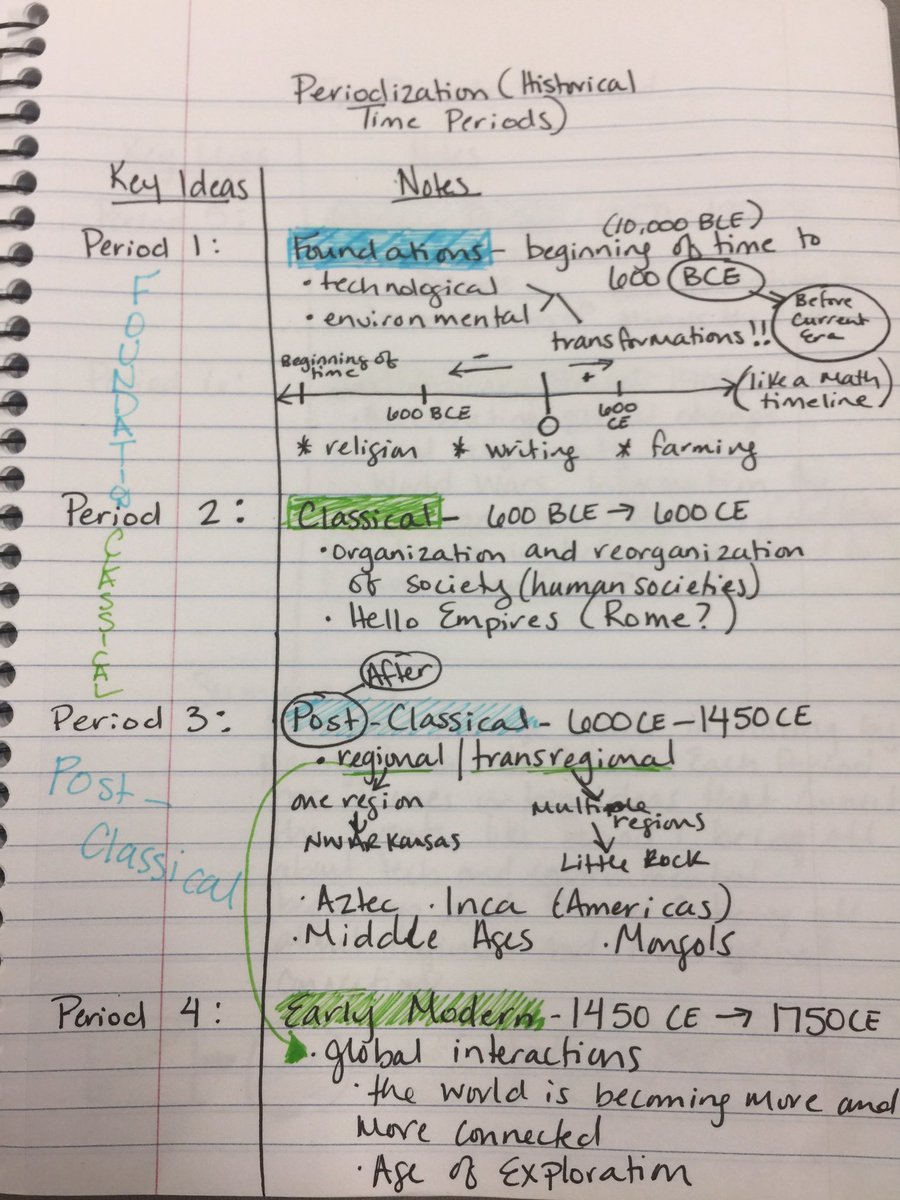 Periodization (Historical
Time Periods)
Key Ideas
Notes
Period 1:
(10,000 BCE)
Foundations - beginning of time to
600 BCE
• technological
• environmental
transformations!!
Before
Current
Era
Beginning of
time
← -
→ +
600 BCE
0
600
CE
(like a math
timeline)
* religion * writing * farming
FOUNDATIO
Period 2: Classical - 600 BCE → 600 CE
• organization and reorganization
of society (human societies)
• Hello Empires (Rome?)
CLASSICAL
After
Period 3: Post-Classical - 600 CE - 1450 CE
• regional / transregional
one region
multiple
regions
NW ARKansas
Little Rock
Post-
Classical
• Aztec • Inca (Americas)
• Middle Ages • Mongols
Period 4: Early Modern - 1450 CE → 1750 CE
• global interactions
• the world is becoming more and
more connected
• Age of Exploration